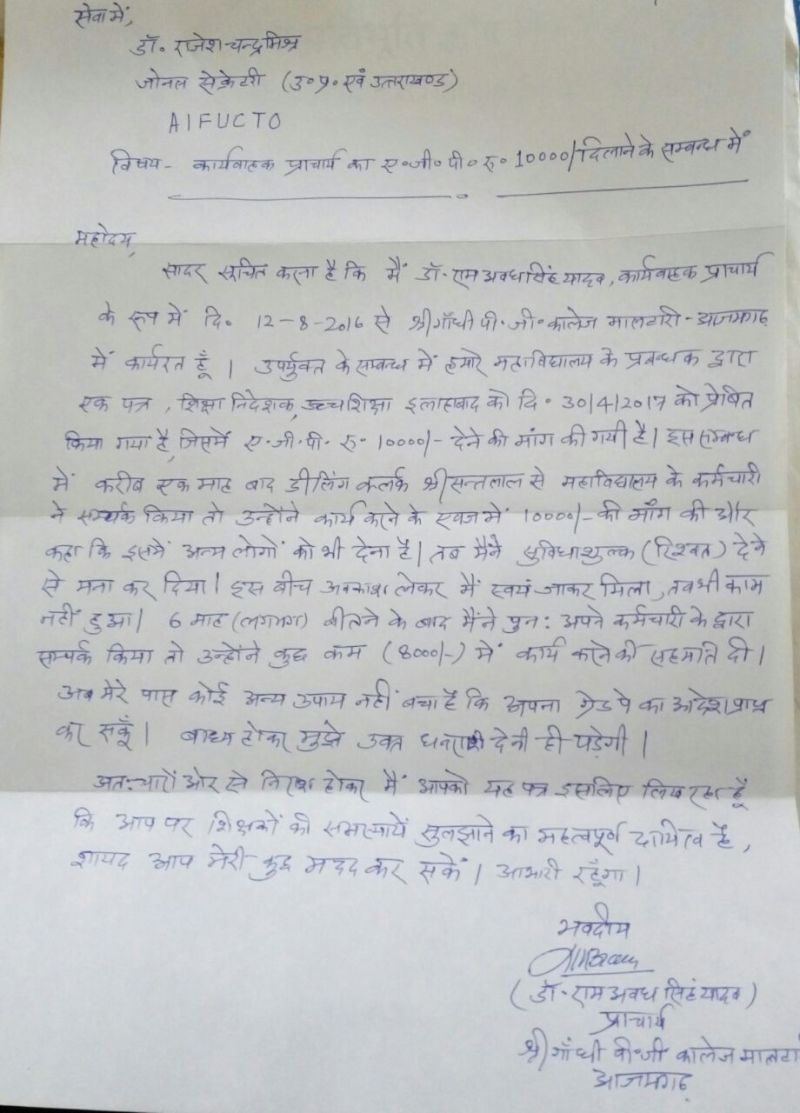 सेवा में,
डॉ० राजेश चन्द्र मिश्र
जोनल सेक्रेटरी (उ०प्र० एवं उत्तराखण्ड)
AIFUCTO
विषय - कार्यवाहक प्राचार्य का ए०जी०पी० रु० 10000/ दिलाने के सम्बन्ध में
महोदय,
सादर सूचित करना है कि मैं डॉ० राम अवध सिंह यादव, कार्यवाहक प्राचार्य
के रूप में दि० 12-8-2016 से श्री गाँधी पी.जी. कालेज मालटारी - आजमगढ़
में कार्यरत हूँ । उपर्युक्त के सम्बन्ध में हमारे महाविद्यालय के प्रबन्धक द्वारा
एक पत्र, शिक्षा निदेशक, उच्च शिक्षा इलाहाबाद को दि० 30/4/2017 को प्रेषित
किया गया है, जिसमें ए.जी.पी. रु. 10000/- देने की मांग की गयी है। इस सम्बन्ध
में करीब एक माह बाद डीलिंग क्लर्क श्री सन्तलाल से महाविद्यालय के कर्मचारी
ने सम्पर्क किया तो उन्होंने कार्य करने के एवज में 10000/- की माँग की और
कहा कि इसमें अन्य लोगों को भी देना है। तब मैंने सुविधाशुल्क (रिश्वत) देने
से मना कर दिया। इस बीच अवकाश लेकर मैं स्वयं जाकर मिला, तब भी काम
नहीं हुआ। 6 माह (लगभग) बीतने के बाद मैंने पुन: अपने कर्मचारी के द्वारा
सम्पर्क किया तो उन्होंने कुछ कम (8000/-) में कार्य करने की सहमति दी।
अब मेरे पास कोई अन्य उपाय नहीं बचा है कि अपना ग्रेड पे का आदेश प्राप्त
कर सकूँ। बाध्य होकर मुझे उक्त धनराशि देनी ही पड़ेगी।
अत: चारों ओर से निराश होकर मैं आपको यह पत्र इसलिए लिख रहा हूँ
कि आप पर शिक्षकों की समस्यायें सुलझाने का महत्वपूर्ण दायित्व है,
शायद आप मेरी कुछ मदद कर सकें। आभारी रहूँगा।
भवदीय
(डॉ० राम अवध सिंह यादव)
प्राचार्य
श्री गाँधी पी.जी. कालेज मालटा
आजमगढ़